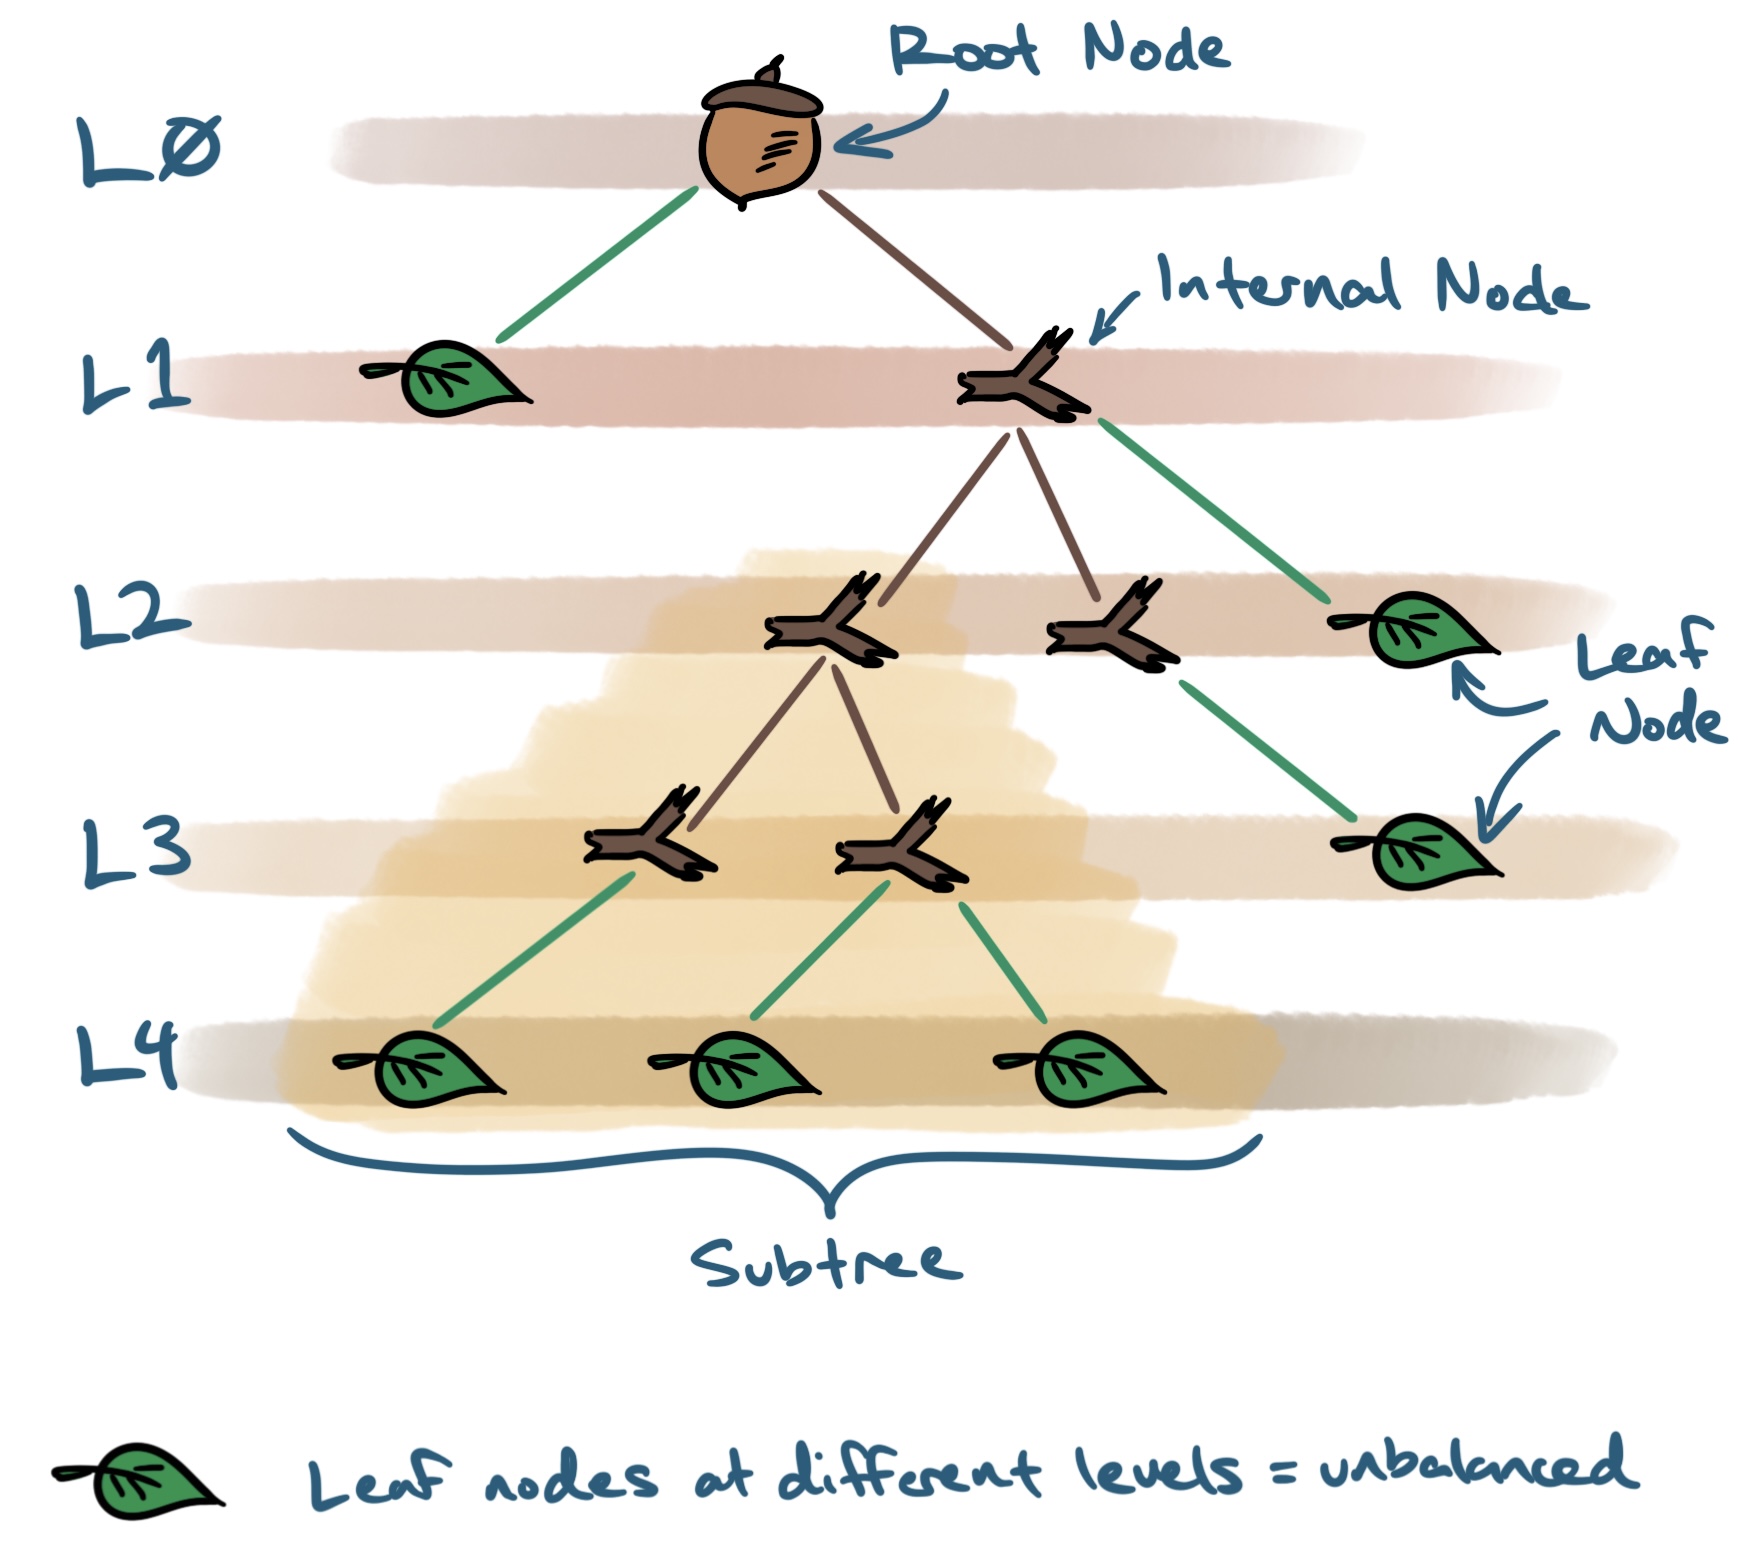 Root Node
LØ
Internal Node
L1
L2
Leaf
Node
L3
L4
Subtree
Leaf nodes at different levels = unbalanced